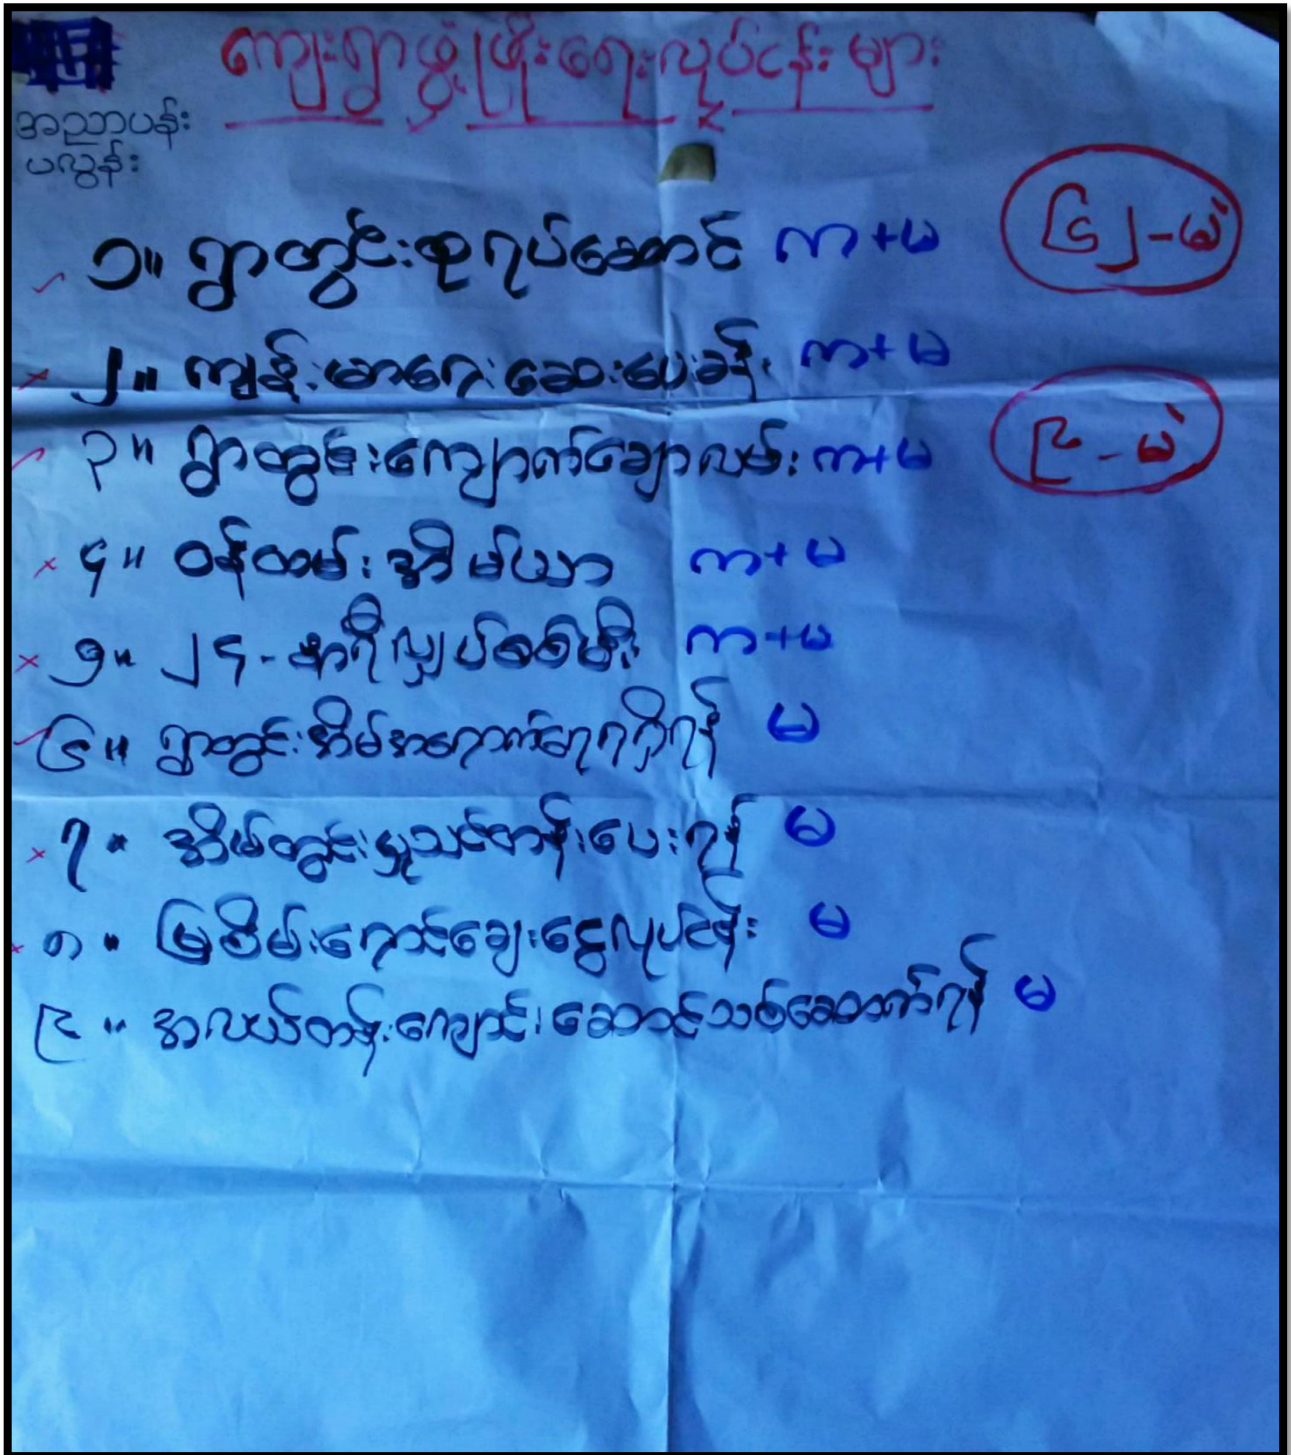 ကျေးရွာဖွံ့ဖြိုးရေးလုပ်ငန်းများ
အညာပန်း
ပလွန်း
၁။ ရွာတွင်းစုရပ်ဆောင် ကာ+မ ၆၂-မဲ
၂။ ကျန်းမာရေးဆေးပေးခန်း ကာ+မ
၃။ ရွာတွင်းကျောက်ချောလမ်း ကာ+မ ၉-မဲ
၄။ ဝန်ထမ်းအိမ်ယာ ကာ+မ
၅။ ၂၄-နာရီလျှပ်စစ်မီး ကာ+မ
၆။ ရွာတွင်းအိမ်အရောက်ရေရရှိရန် မ
၇။ အိမ်တွင်းမှုသင်တန်းပေးရန် မ
၈။ မြစိမ်းရောင်ချေးငွေလုပ်ငန်း မ
၉။ အလယ်တန်းကျောင်းဆောင်သစ်ဆောက်ရန် မ